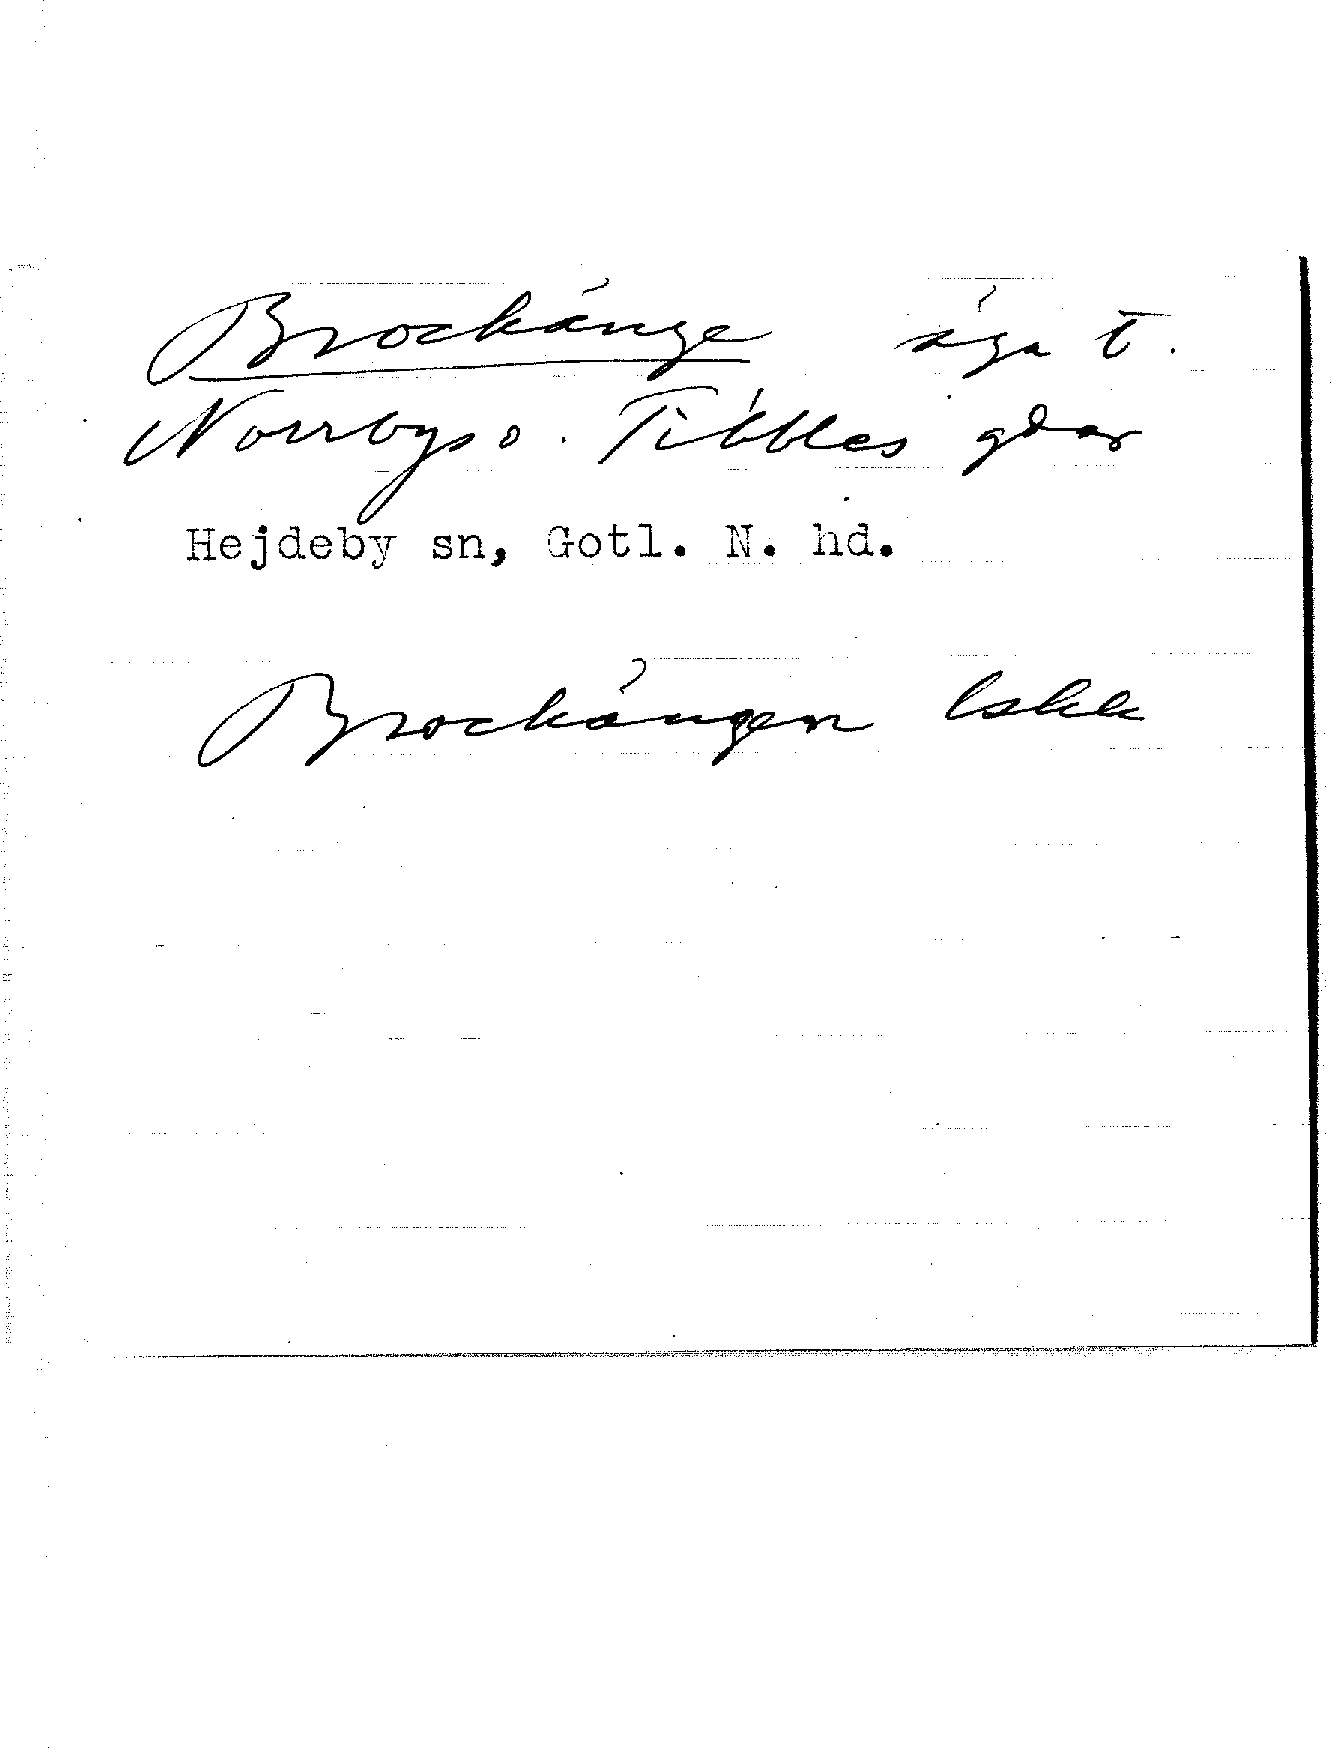 Brockänge äga t.
Norrbys o. Tibbles gdar
Hejdeby sn, Gotl. N. hd.
Brockängen Lskk